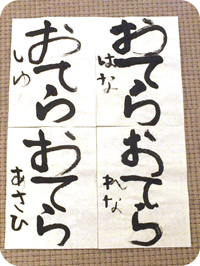 おてら
はな
おてら
れな
おてら
しゆ
おてら
あさひ